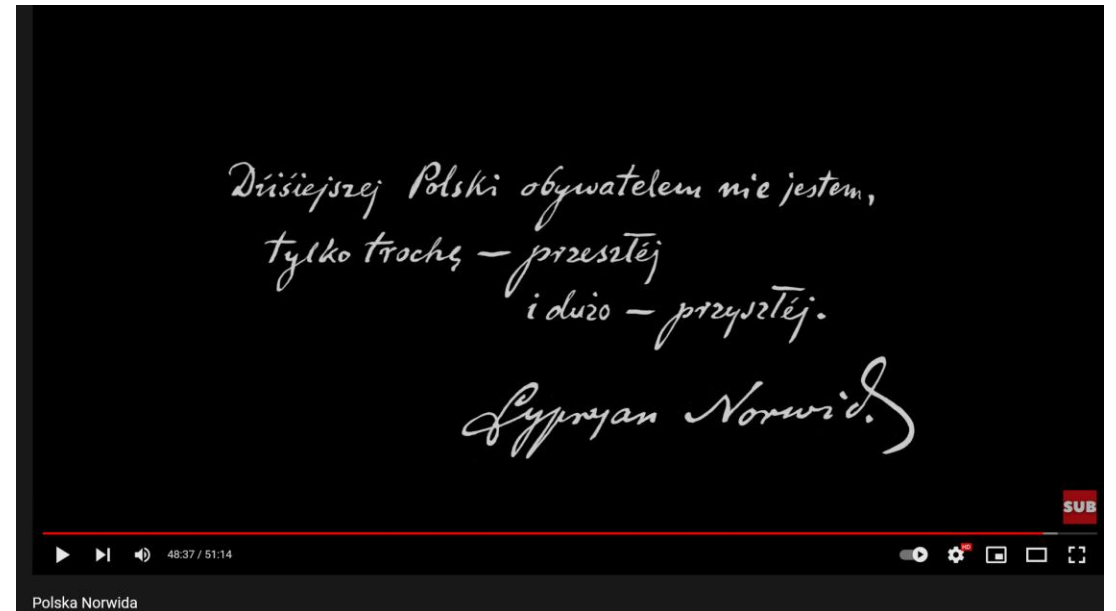 Dzisiejszej Polski obywatelem nie jestem,
tylko trochę — przeszłéj
i dużo — przyszłéj.
Cypryan Norwid.
SUB
48:37 / 51:14
HD
Polska Norwida